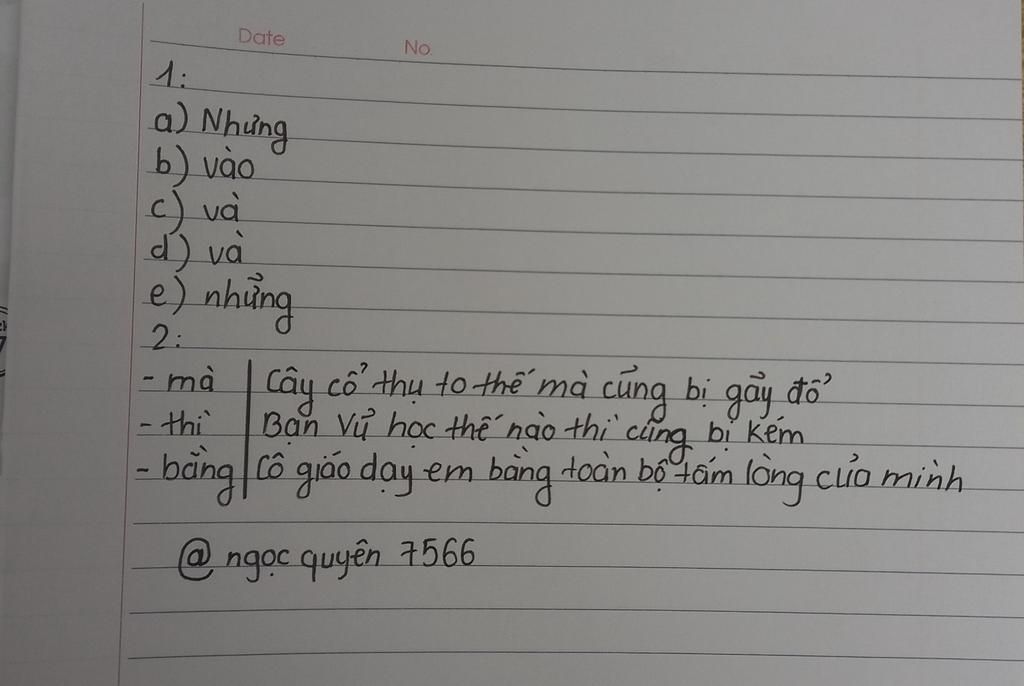 Date No.
1:
a) Nhưng
b) vào
c) và
d) và
e) những
2:
- mà | Cây cổ thụ to thế mà cũng bị gẫy đổ
- thì | Bạn Vũ học thế nào thì cũng bị kém
- bằng | Cô giáo dạy em bằng toàn bộ tấm lòng của mình
@ ngọc quyên 7566